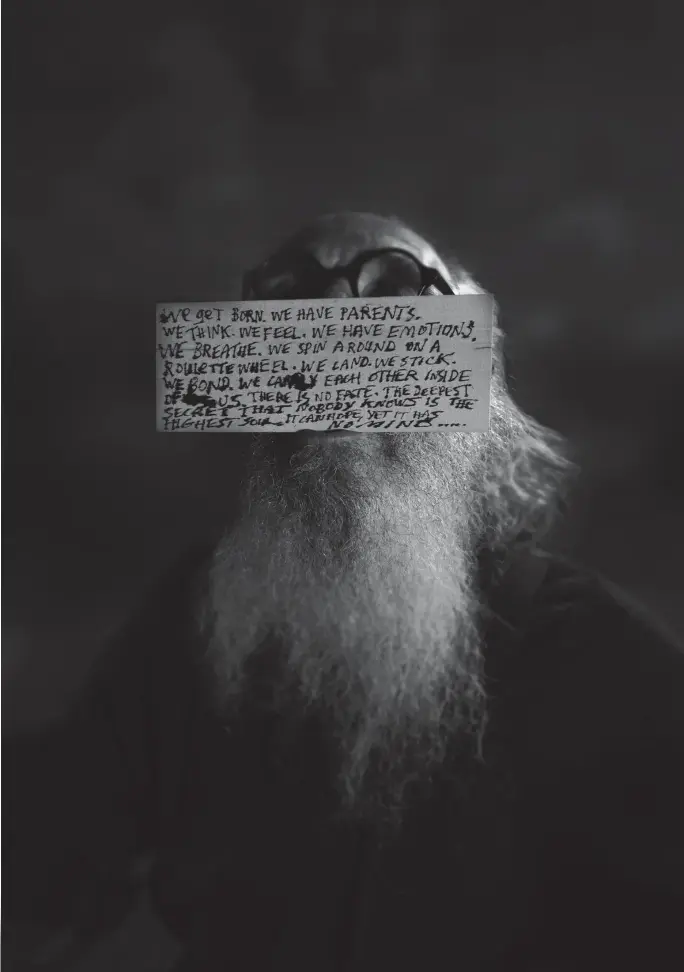 WE GET BORN. WE HAVE PARENTS.
WE THINK. WE FEEL. WE HAVE EMOTIONS.
WE BREATHE. WE SPIN AROUND ON A
ROULETTE WHEEL. WE LAND. WE STICK.
WE BOND. WE CARRY EACH OTHER INSIDE
OF US. THERE IS NO FATE. THE DEEPEST
SECRET THAT NOBODY KNOWS IS THE
HIGHEST SOUL. IT CAN HOPE, YET IT HAS
NO MIND....